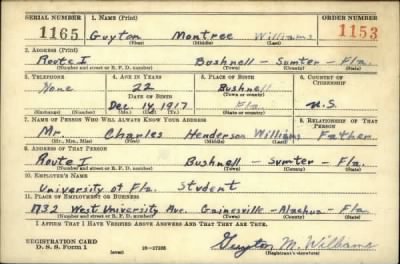 SERIAL NUMBER 1. NAME (Print) ORDER NUMBER
1165 Guyton Montree Williams 1153
(First) (Middle) (Last)
2. ADDRESS (Print)
Route 1 Bushnell - Sumter - Fla.
(Number and street or R. F. D. number) (Town) (County) (State)
3. TELEPHONE 4. AGE IN YEARS 5. PLACE OF BIRTH 6. COUNTRY OF CITIZENSHIP
None 22 Bushnell
DATE OF BIRTH (Town or county)
Dec. 14, 1917 Fla U.S.
(Exchange) (Number) (Mo.) (Day) (Yr.) (State or country)
7. NAME OF PERSON WHO WILL ALWAYS KNOW YOUR ADDRESS 8. RELATIONSHIP OF THAT PERSON
Mr. Charles Henderson Williams Father
(Mr., Mrs., Miss) (First) (Middle) (Last)
9. ADDRESS OF THAT PERSON
Route 1 Bushnell - Sumter - Fla.
(Number and street or R. F. D. number) (Town) (County) (State)
10. EMPLOYER'S NAME
University of Fla. Student
11. PLACE OF EMPLOYMENT OR BUSINESS
1732 West University Ave. Gainesville - Alachua - Fla.
(Number and street or R. F. D. number) (Town) (County) (State)
I AFFIRM THAT I HAVE VERIFIED ABOVE ANSWERS AND THAT THEY ARE TRUE.
REGISTRATION CARD
D. S. S. Form 1 (over) Guyton M. Williams
(Registrant's signature)